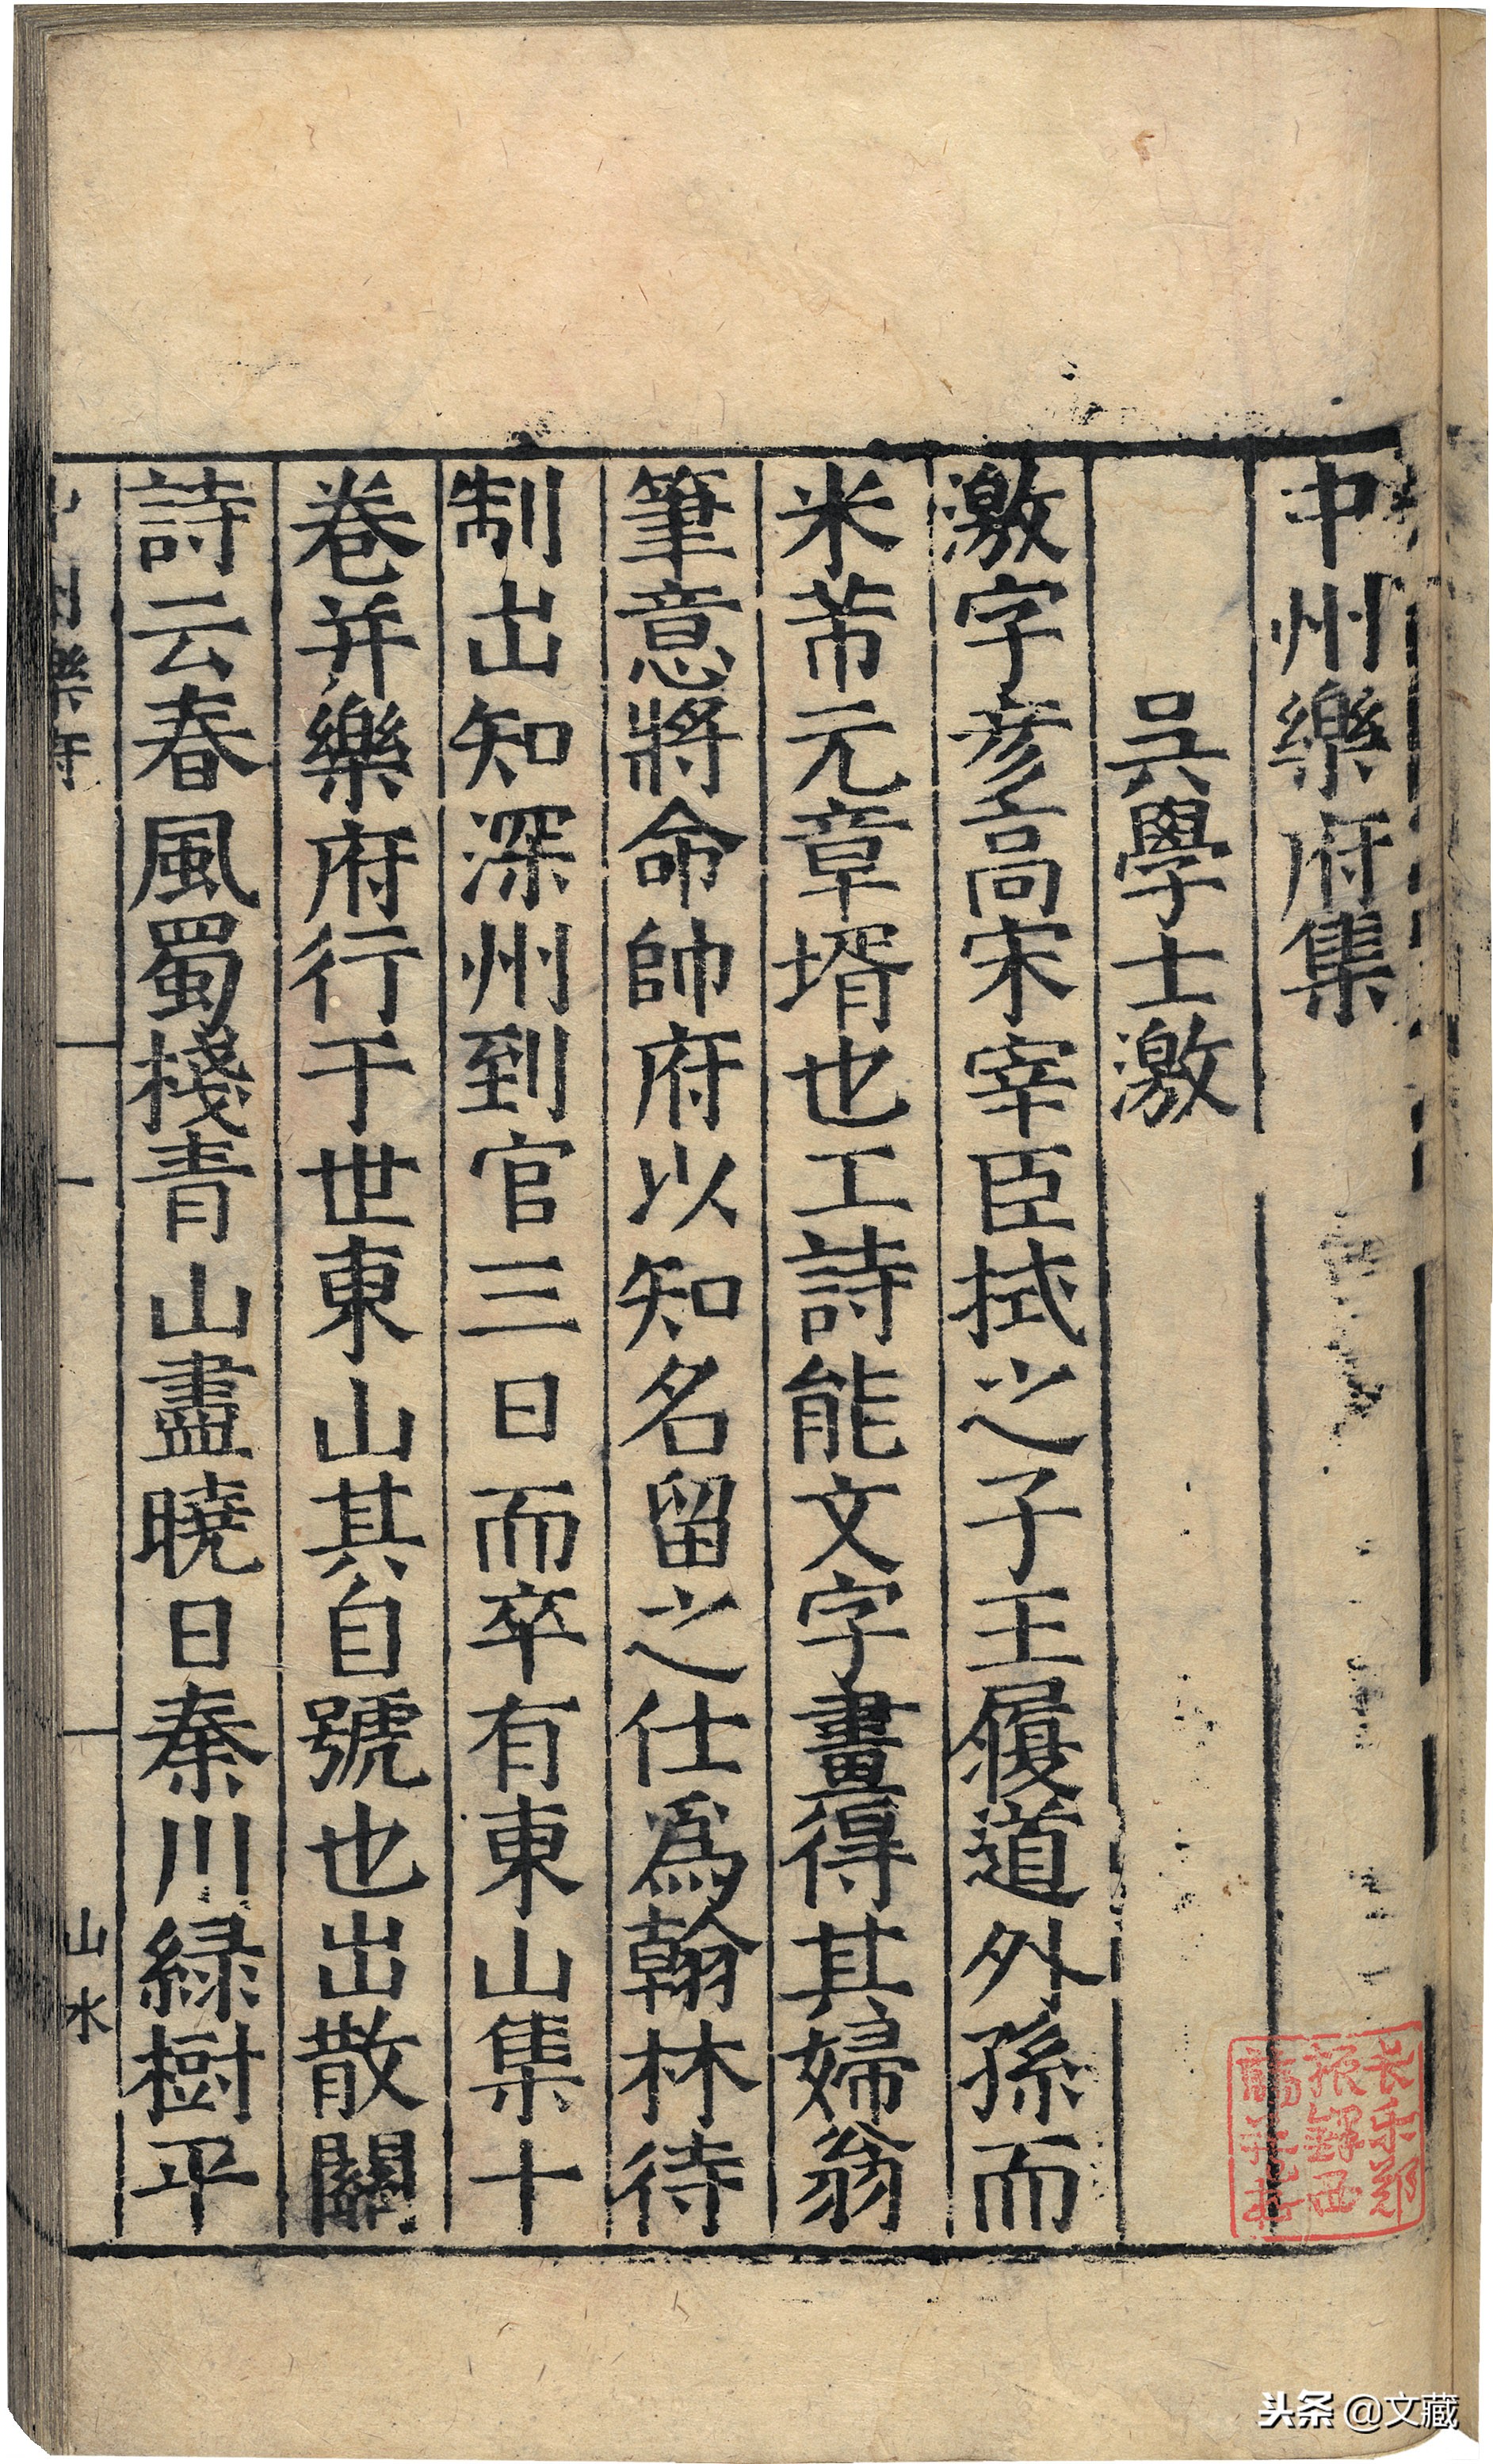 中州樂府集
吳學士激
激字彥高宋宰臣拭之子王履道外孫而
米芾元章壻也工詩能文字畫得其婦翁
筆意將命帥府以知名留之仕爲翰林待
制出知深州到官三日而卒有東山集十
卷并樂府行于世東山其自號也出散關
詩云春風蜀棧青山盡曉日秦川綠樹平
樂府
一
山水
长乐郑
振铎西
谛藏书
头条 @文藏